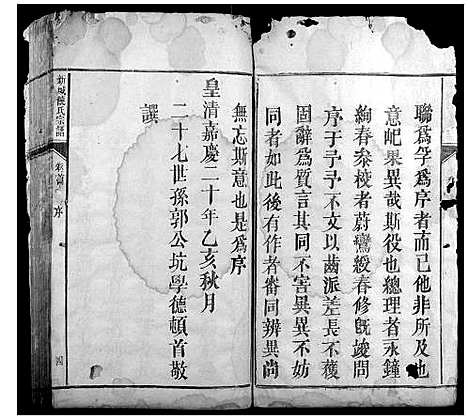 聯爲孚爲序者而已他非所及也
意屺果異哉斯役也總理者永鐘
絢春叅校者蔚鸞綬春修旣竣問
序于予予不文以齒派差長不獲
固辭爲質言其同不害異異不妨
同者如此後有作者審同辨異尚
無忘斯意也是爲序
皇清嘉慶二十年乙亥秋月
二十七世孫郭公坑學德頓首敬
譔
新城饒氏宗譜
卷首
序
四